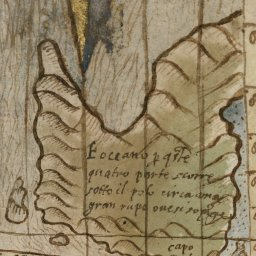 E oceano p q̃ste
quatro parte scorre
sotto il polo circa una
gran rupe
capo